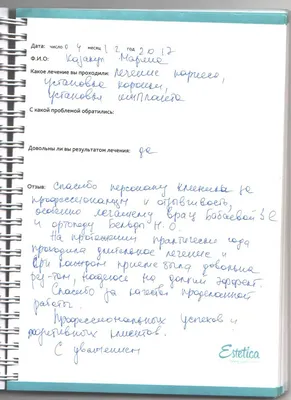 Дата: число 04 месяц 12 год 2017
Ф.И.О: Марина
Какое лечение вы проходили: лечение кариеса,
установка коронки,
установка импланта
С какой проблемой обратились:
Довольны ли вы результатом лечения: да
Отзыв: Спасибо персоналу клиники за
профессионализм и отзывчивость,
особенно лечащему врачу Бабаевой
и ортопеду Н.О.
На протяжении практически года
проходила длительное лечение и
при каждом приеме была довольна
рез-том, надеюсь на долгий эффект.
Спасибо за качество проделанной
работы.
Профессиональных успехов и
позитивных клиентов.
С уважением
Estetica